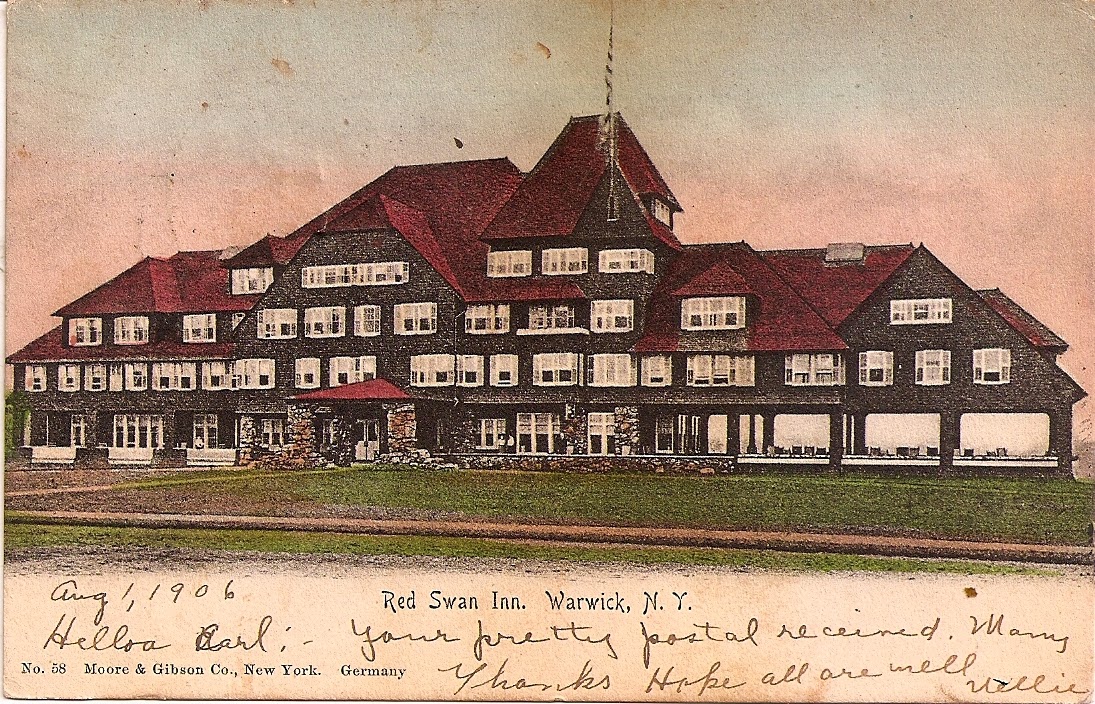 Aug 1, 1906
Red Swan Inn. Warwick, N. Y.
Helloa Carl:- Your pretty postal received. Many
Thanks Hope all are well
Nellie
No. 58 Moore & Gibson Co., New York. Germany